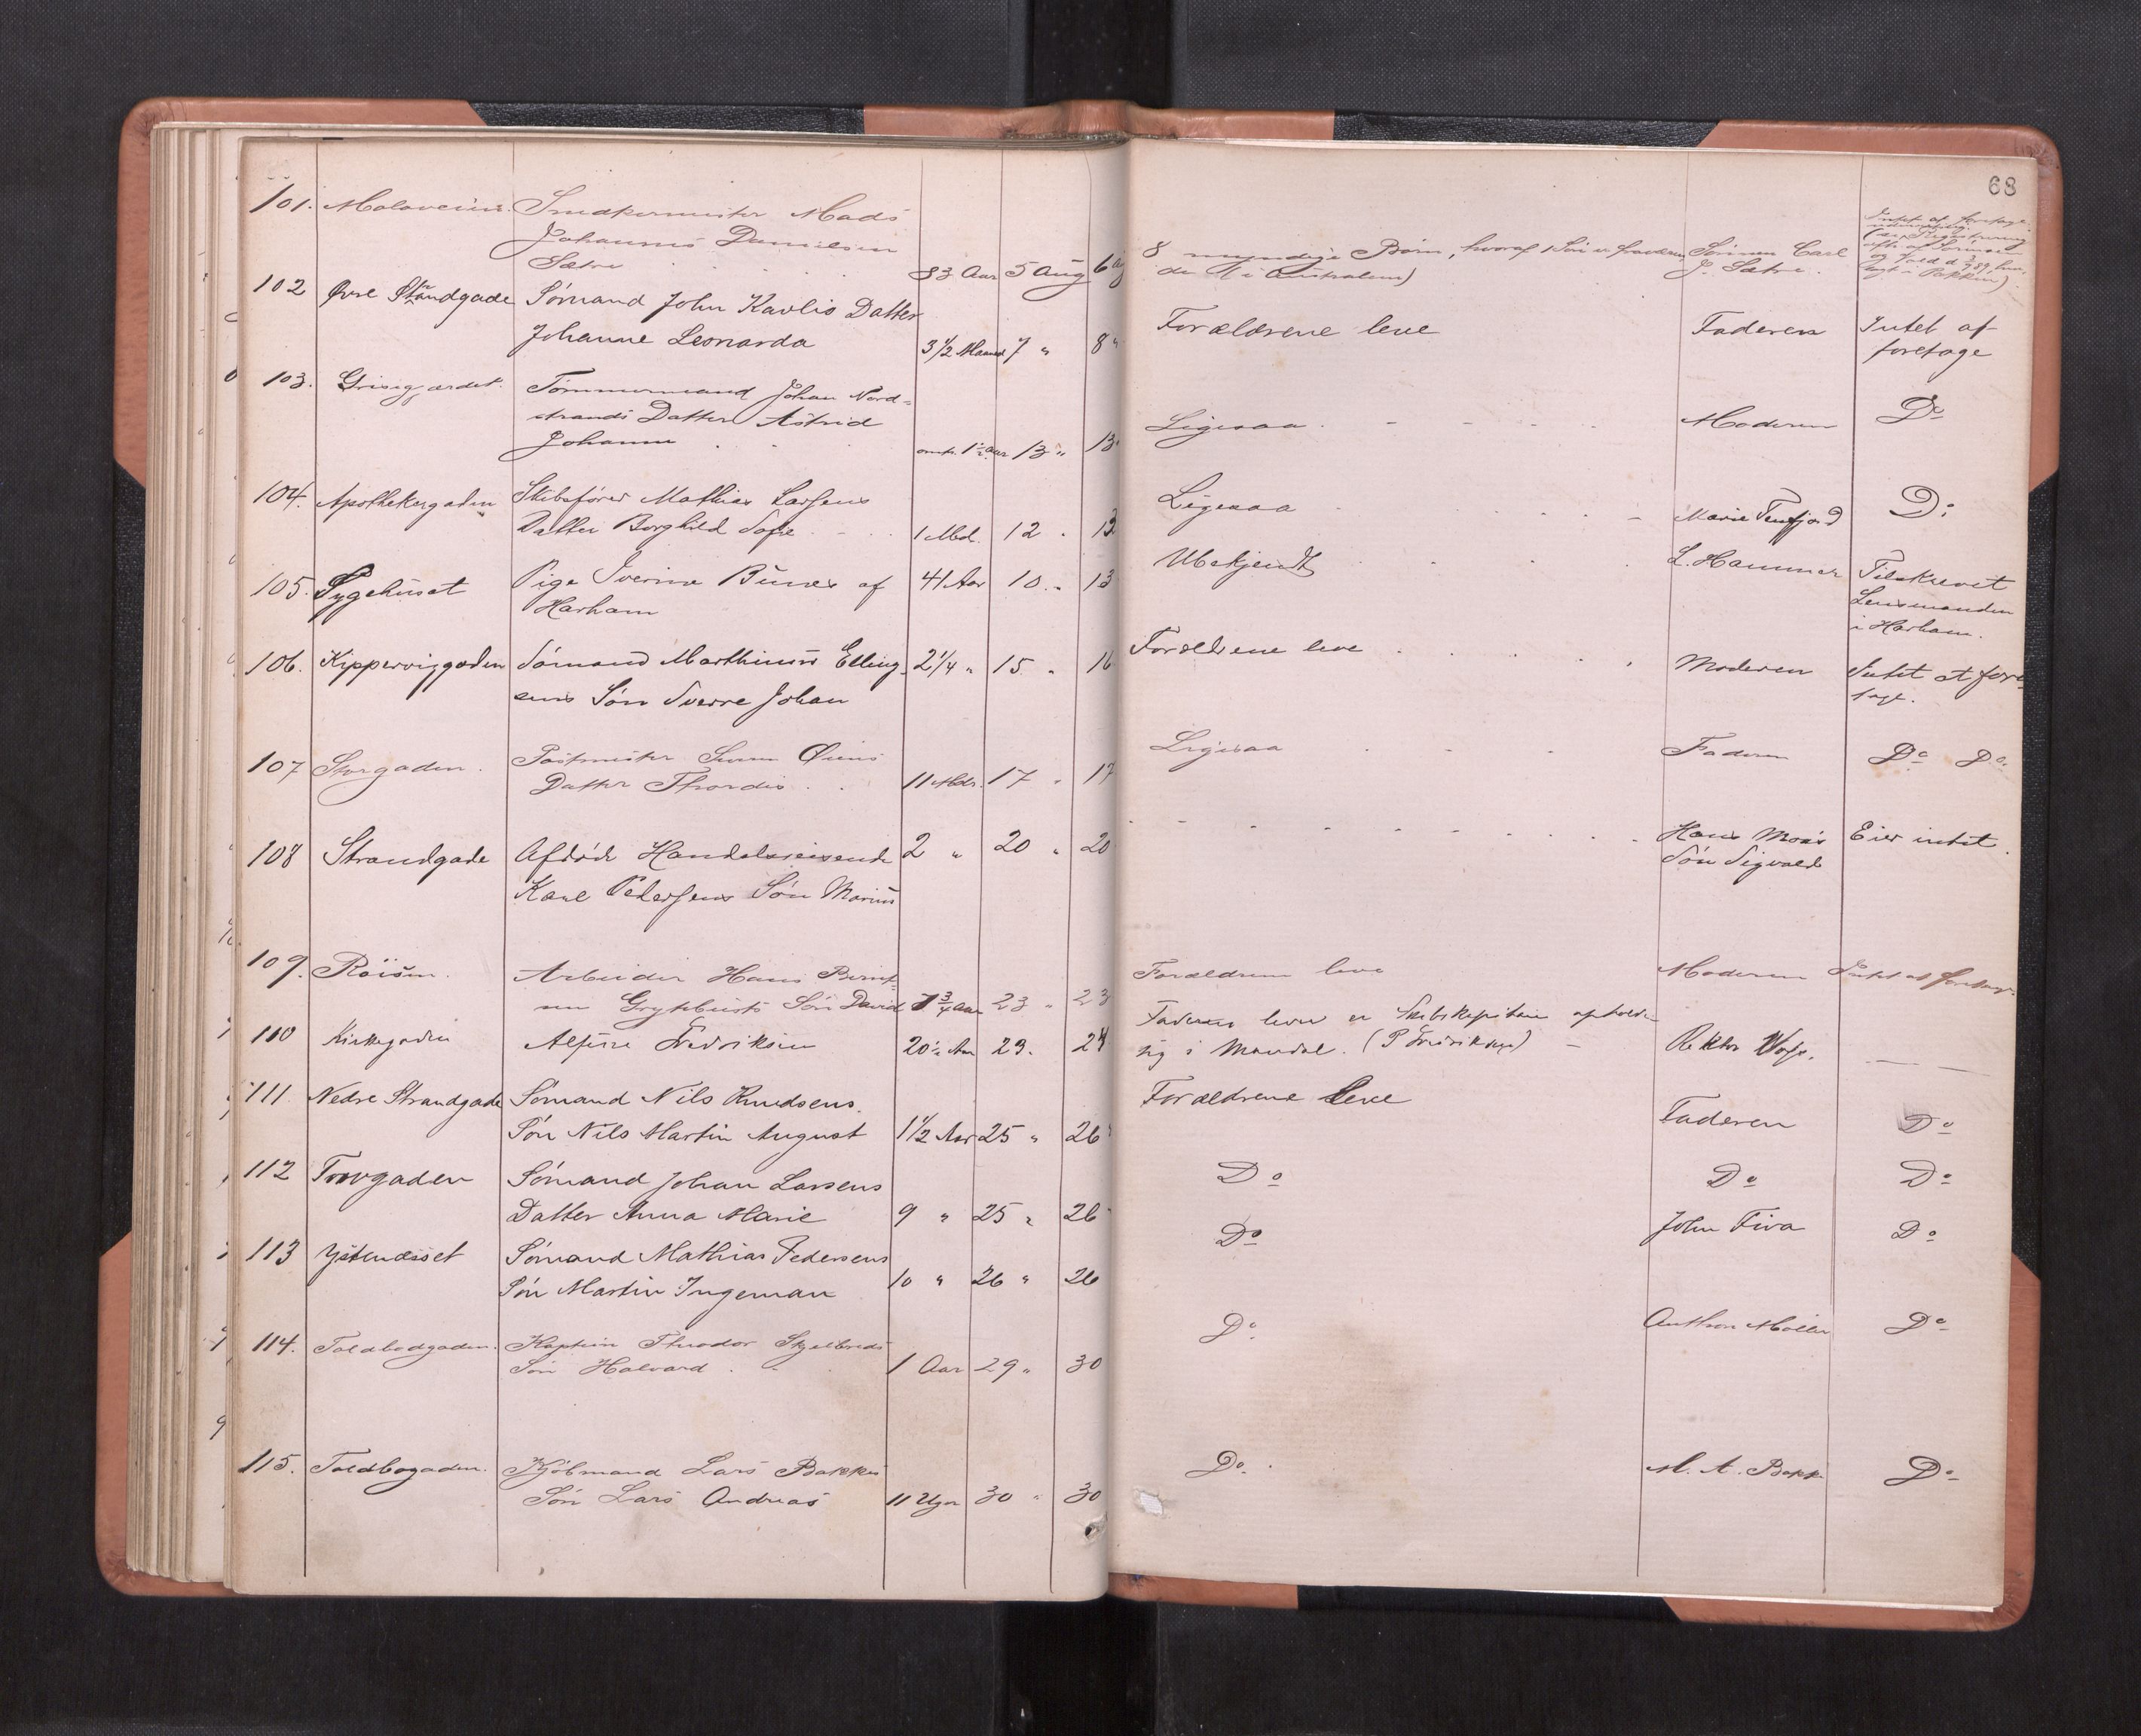 68
101. Smedkermester Mads
Johannes Danielsen
Sætre 83 Aar 5 Aug 6
8 myndige Børn, hvoraf 1 Søn er
Sønnen Carl
J. Sætre.
102 Øvre Strandgade Sømand John Kavlis Datter
Johanne Leonarda 3½ Maaned 7 " 8 "
Forældrene leve Faderen Intet at
foretage
103. Grisegjærdet. Tømmermand Johan Nord-
strands Datter Astrid
Johanne 13 " 13
Ligesaa Moderen Do
104. Apothekergaden Skibsfører Mathias Larsens
Datter Borghild Sofie 1 Md. 12 . 13
Ligesaa Marie Tenfjord Do
105. Sygehuset Pige Iverine Bunes af 41 Aar 10. " 13
Harham
Ubekjendt L. Hammer Tilskrevet
Lensmanden
i Harham.
106. Kipperviggaden Sømand Marthinus Elling- 2¼ " 15 " 16
sens Søn Sverre Johan
Forældrene leve Moderen Intet at fore-
tage.
107 Storgaden. Postmester Øiens
Datter Thordis 11 Mdr. 17 " 17
Ligesaa Faderen Do Do
108 Strandgade Afdøde Handelsreisende 2 " 20 " 20
Karl Pedersens Søn Marius
Hans Moa's Eier intet.
Søn Sigvald
109. Røisen. Arbeider Hans Bernt-
sen Søn David 1¾ Aar 23 " 23
Forældrene leve Moderen Intet at foretage.
110 Kirkegaden Fredriksen 20½ Aar 23. 24
Faderen lever er Skibskaptein opholder
sig i Mandal. (P Fredriksen) Rektor
111 Nedre Strandgade Sømand Nils Knudsens
Søn Nils Martin August 1½ Aar 25 " 26
Forældrene leve Faderen Do
112 Torvgaden Sømand Johan Larsens
Datter Anna Marie 9 " 25 " 26
Do Do Do
113 Ystenæsset Sømand Mathias Pedersens
Søn Martin Ingeman 10 " 26 " 26
Do John Fiva Do
114. Toldbodgaden. Kaptein Theodor Skjelbreds
Søn Halvard 1 Aar 29 " 30
Do Anthon Møller Do
115. Toldbogaden. Kjøbmand Lars Bakkes
Søn Lars Andreas 11 Uger 30 " 30
Do M. A. Bakke Do